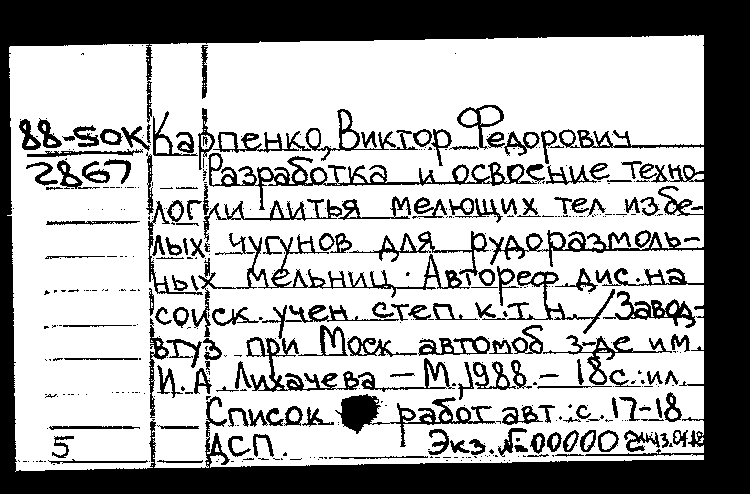 88-50К Карпенко, Виктор Федорович
2867 Разработка и освоение техно-
логии литья мелющих тел из бе-
лых чугунов для рудоразмоль-
ных мельниц. Автореф. дис. на
соиск. учен. степ. к.т.н. /Завод-
втуз при Моск автомоб. з-де им.
И.А. Лихачева. — М., 1988. — 18с.:ил.
Список работ авт.: с. 17-18.
5 ДСП. Экз. № 000002